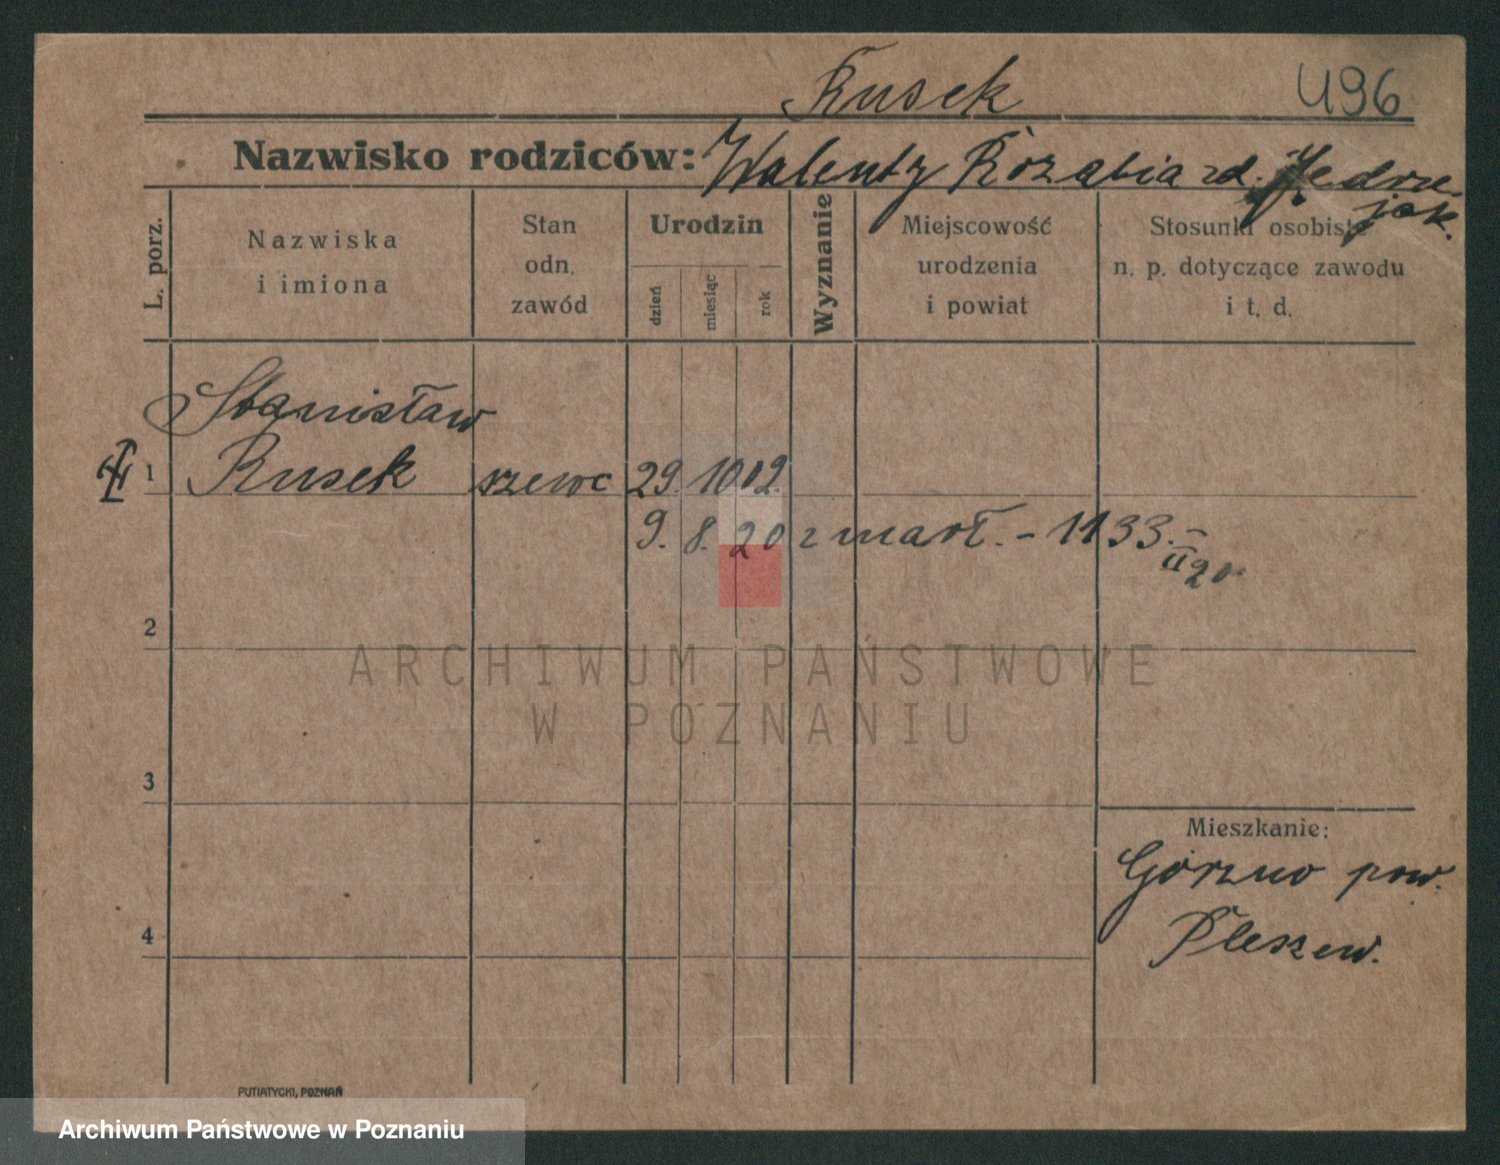 Rusek
496
Nazwisko rodziców: Walenty Rozalia zd. Jędrze-
jak.
L. porz.
Nazwiska
i imiona
Stan
odn.
zawód
Urodzin
dzień
miesiąc
rok
Wyznanie
Miejscowość
urodzenia
i powiat
Stosunki osobiste
n. p. dotyczące zawodu
i t. d.
Stanisław
1 Rusek szewc 29. 10 02.
9. 8. 20 zmarł. - 1133.-
II 20
2
3
4
Mieszkanie:
Górzno pow.
Pleszew.
PUTIATYCKI, POZNAŃ
ARCHIWUM PAŃSTWOWE
W POZNANIU
Archiwum Państwowe w Poznaniu